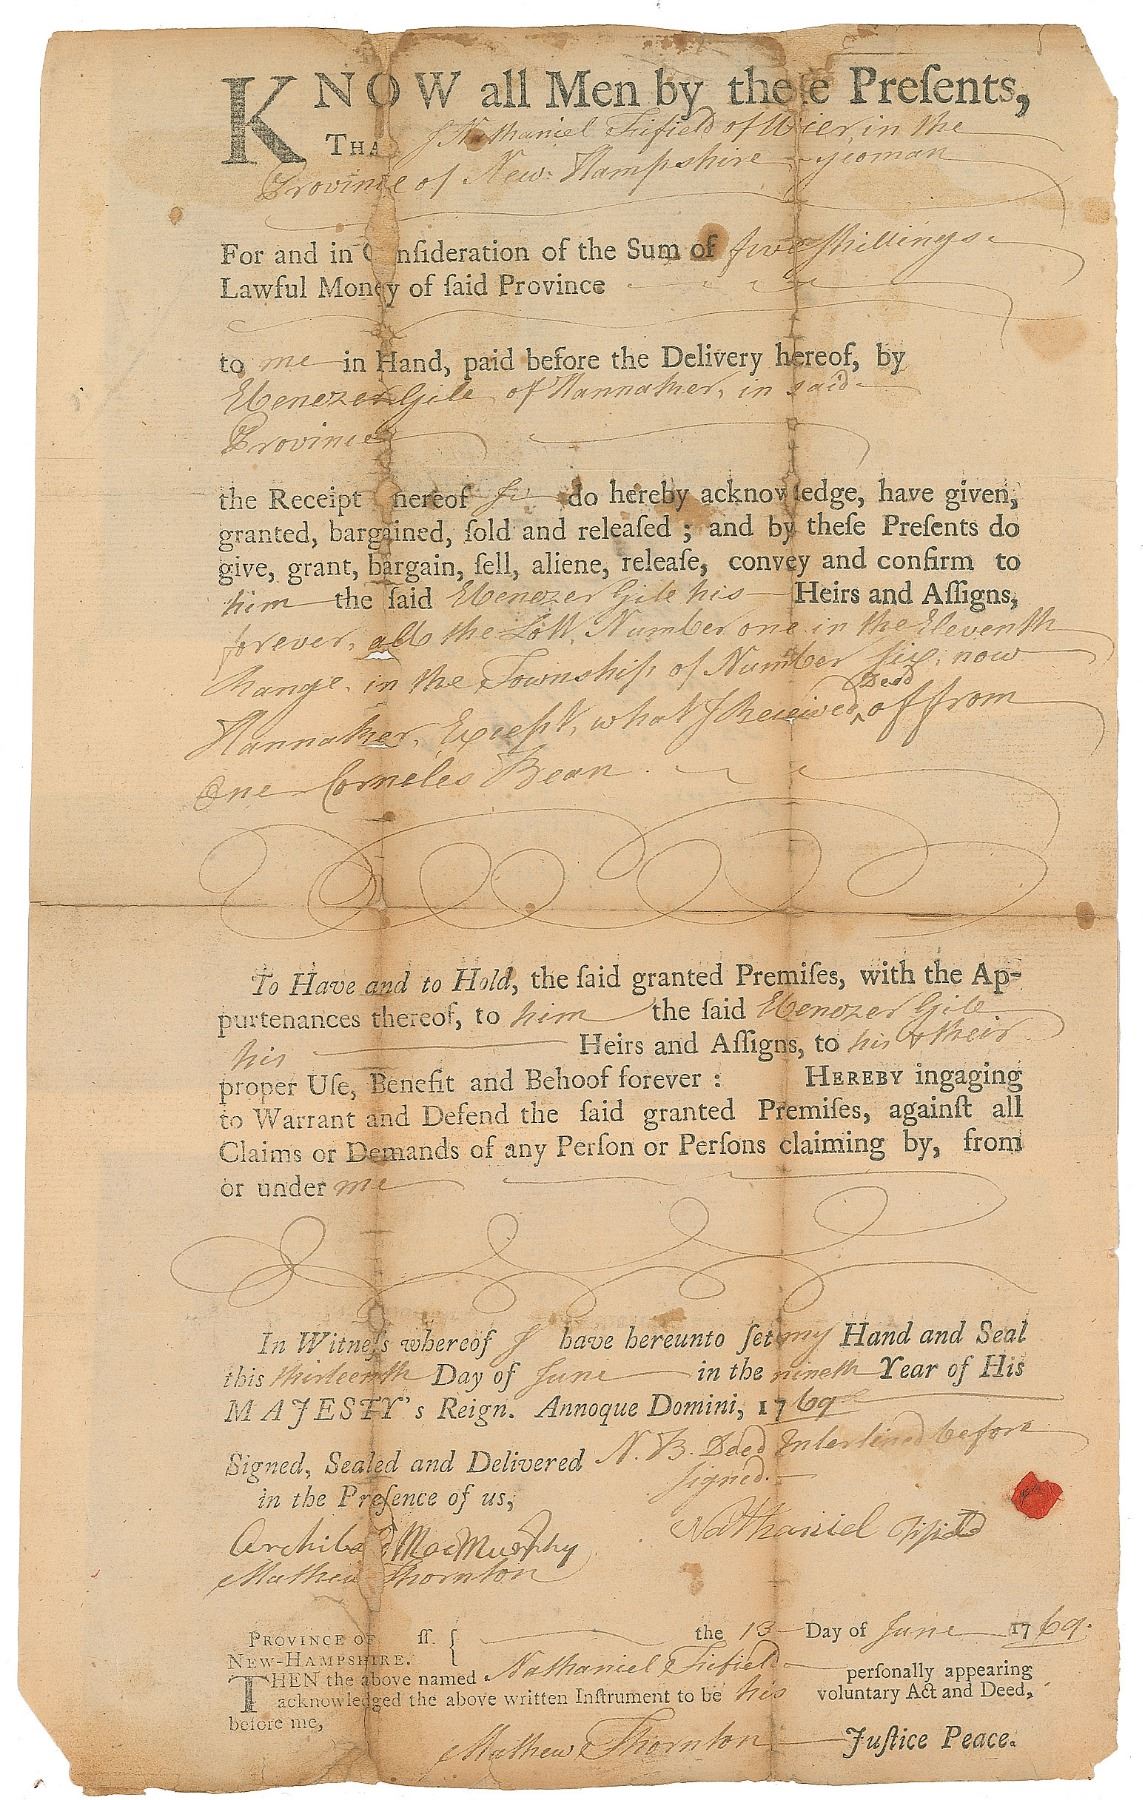 KNOW all Men by theſe Preſents,
THAT I Nathaniel Fifield of Wier in the
Province of New-Hampshire yeoman
For and in Conſideration of the Sum of five Shillings
Lawful Money of ſaid Province
to me in Hand, paid before the Delivery hereof, by
Ebenezer Gile of Hannaker, in said
Province
the Receipt hereof I do hereby acknowledge, have given,
granted, bargained, ſold and releaſed ; and by theſe Preſents do
give, grant, bargain, ſell, aliene, releaſe, convey and confirm to
him the ſaid Ebenezer Gile his Heirs and Aſſigns,
forever, all the Lott, Number one in the Eleventh
Range, in the Township of Number six, now
Hannaker, Except, what I Received ^Deed of from
One Corneles Bean
To Have and to Hold, the ſaid granted Premiſes, with the Ap-
purtenances thereof, to him the ſaid Ebenezer Gile
his Heirs and Aſſigns, to his & their
proper Uſe, Benefit and Behoof forever : HEREBY ingaging
to Warrant and Defend the ſaid granted Premiſes, againſt all
Claims or Demands of any Perſon or Perſons claiming by, from
or under me
In Witneſs whereof I have hereunto ſet my Hand and Seal
this thirteenth Day of June in the nineth Year of His
MAJESTY's Reign. Annoque Domini, 1769
Signed, Sealed and Delivered N.B. Deed Interlined before
in the Preſence of us, signed.
Archibald MacMurphy Nathaniel Fifield
Mathew Thornton
PROVINCE OF NEW-HAMPSHIRE. ſſ. { the 13 Day of June 1769.
THEN the above named Nathaniel Fifield perſonally appearing
acknowledged the above written Inſtrument to be his voluntary Act and Deed,
before me,
Mathew Thornton Juſtice Peace.